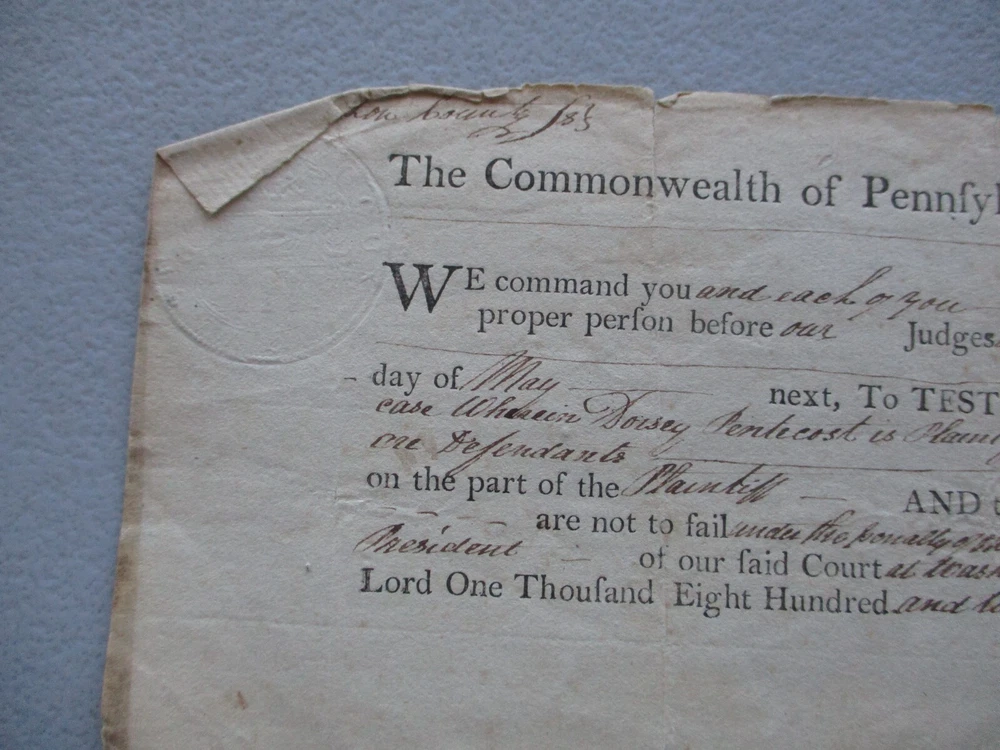 ton County ſss
The Commonwealth of Pennſyl
WE command you and each of you
proper perſon before our Judges
day of May next, To TEST
case Wherein Dorsey Pentecost is Plain
are Defendants
on the part of the Plaintiff AND t
are not to fail under the penalty of
President of our ſaid Court at Wash
Lord One Thouſand Eight Hundred and